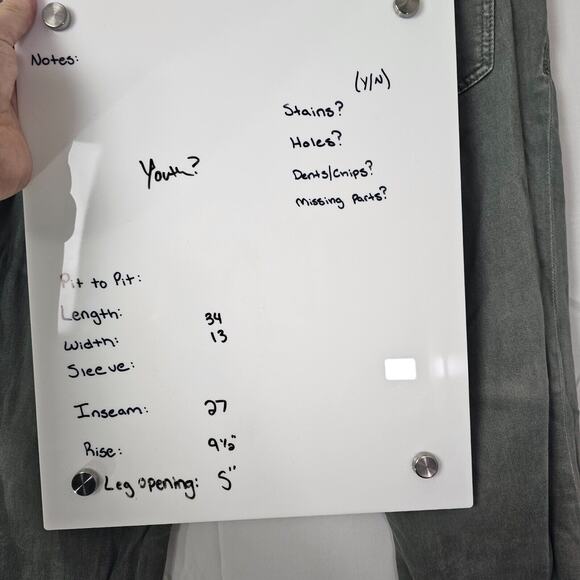 Notes:
(Y/N)
Stains?
Holes?
Youth?
Dents/Chips?
Missing Parts?
Pit to Pit:
Length: 34
Width: 13
Sleeve:
Inseam: 27
Rise: 9 1/2"
Leg opening: 5"